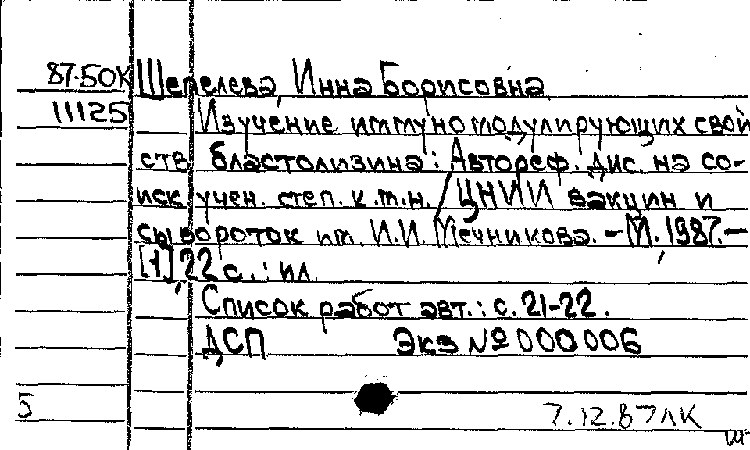 87-50К Шепелева, Инна Борисовна
11125 Изучение иммуномодулирующих свой
ств бластолизина: Автореф. дис. на со-
иск. учен. степ. к.м.н. /ЦНИИ вакцин и
сывороток им. И.И. Мечникова. – М., 1987. –
[1], 22 с. : ил.
Список работ авт.: с. 21-22.
ДСП Экз № 000006
5 7.12.87 ЛК